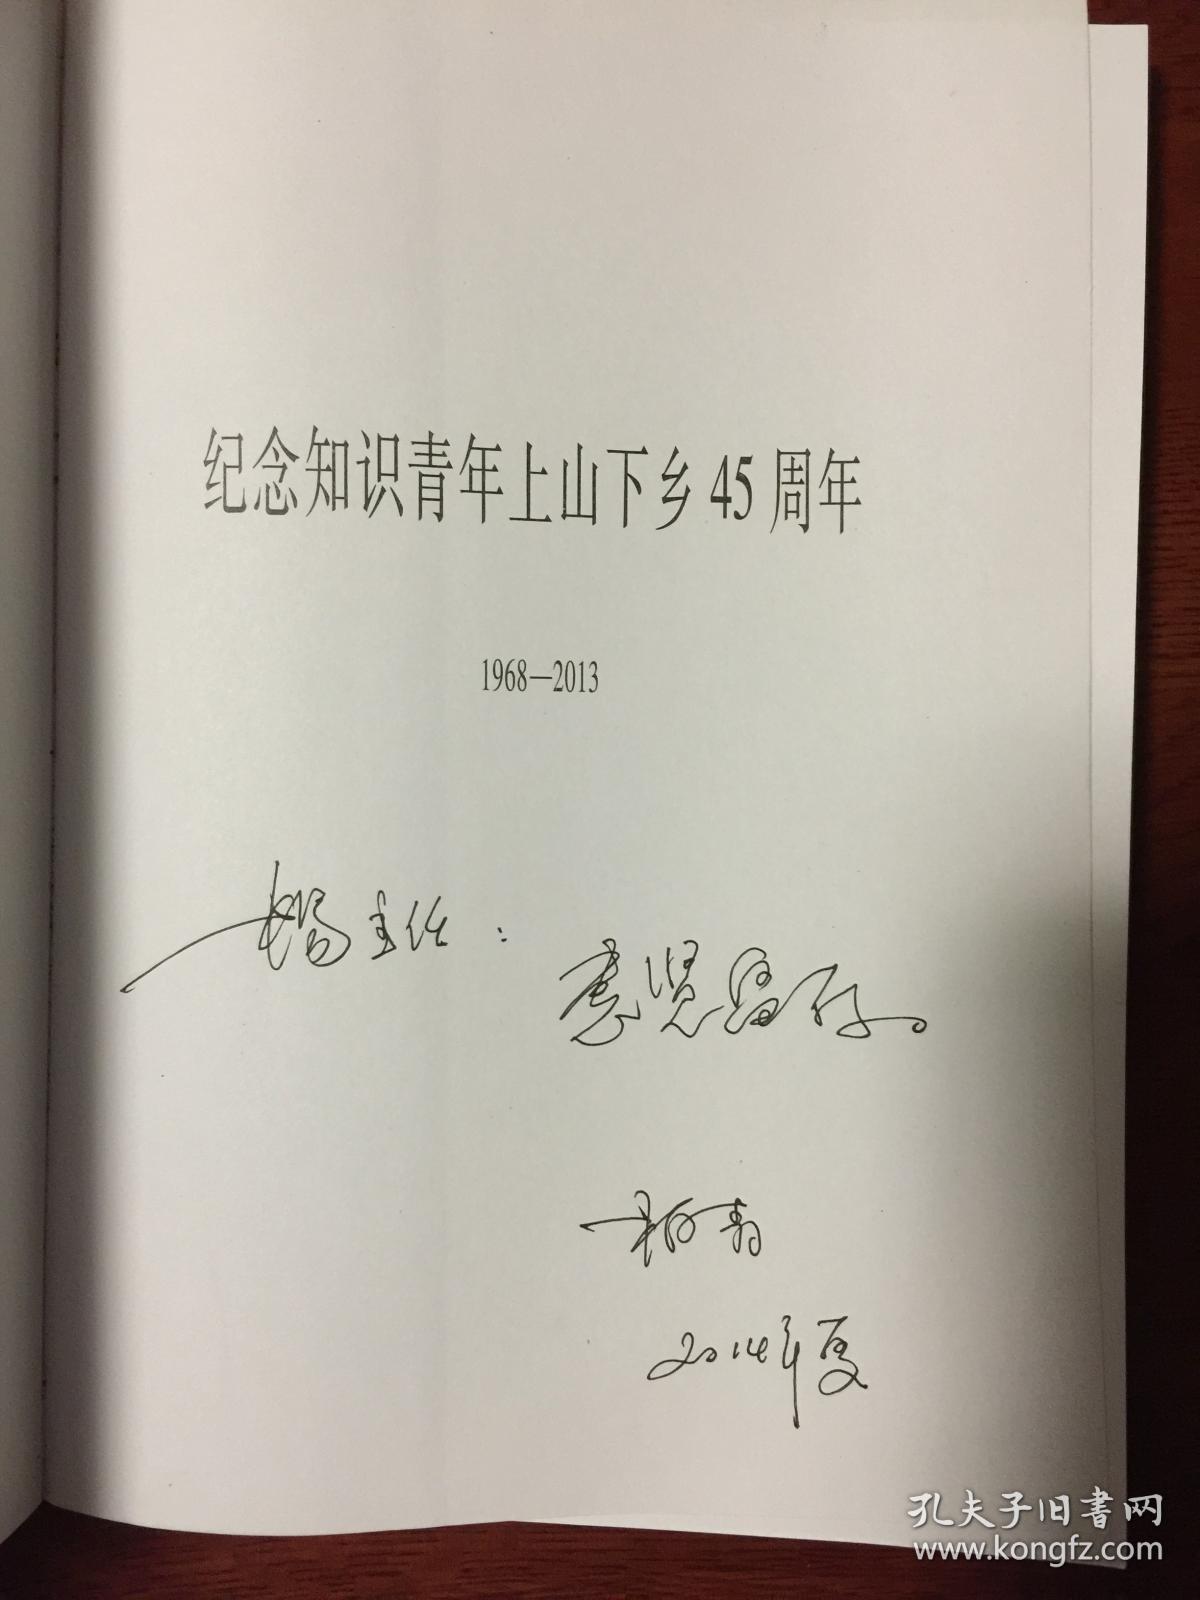 纪念知识青年上山下乡45周年
1968—2013
杨主任：
惠贤留存。
柏青
2014年夏
孔夫子旧书网
www.kongfz.com